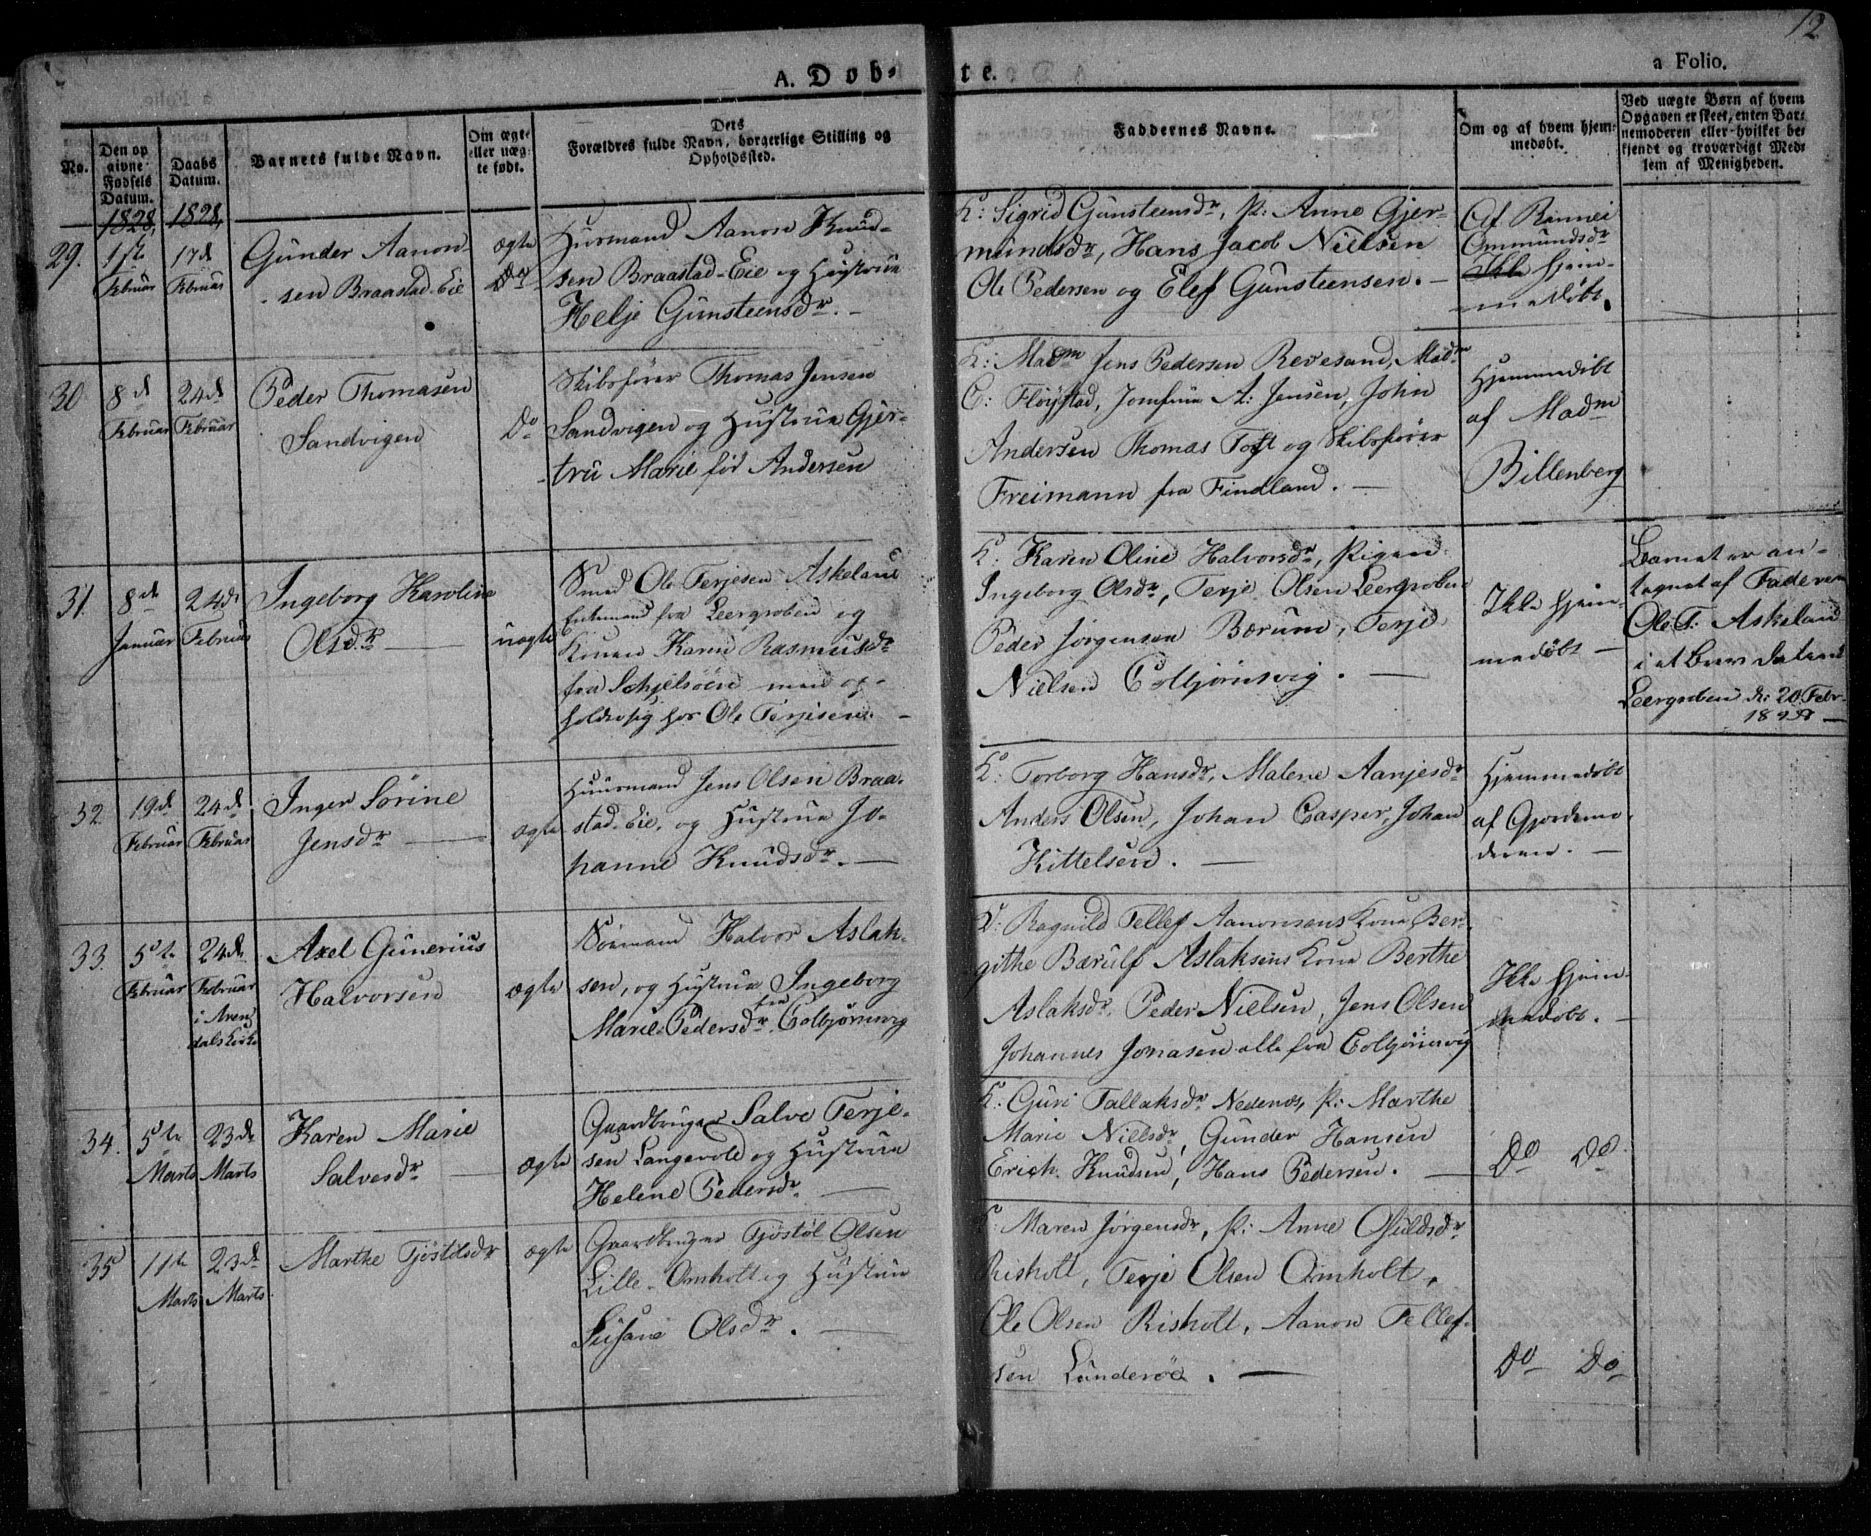 12
A. Døb-
te.
a Folio.
No.
Den op
givne
Fødsels
Datum.
Daabs
Datum.
Barnets fulde Navn.
Om ægte
eller uæg-
te født.
Dets
Forældres fulde Navn, borgerlige Stilling og
Opholdssted.
Faddernes Navne.
Om og af hvem hjem-
medøbt.
Ved uægte Børn af hvem
Opgaven er skeet, enten Bar-
nemoderen eller hvilket be-
kjendt og troværdigt Med-
lem af Menigheden.
1828, 1828,
29.
1ste
Februar
17de
Februar
Gunder Aanon-
sen Braastad-Eie
ægte
Do
Huusmand Aanon Knud-
sen Braastad-Eie og Hustrue
Helje Gunsteensdr. -
K: Sigrid Gunsteensdr, P: Anne Gjer-
mundsdr, Hans Jacob Nielsen
Ole Pedersen og Elef Gunsteensen. -
Af Rannei
Ommundsdr
Ikke hjem-
medøbt.
30
8d
Februar
24d
Februar
Peder Thomasen
Sandvigen
Do
Skibsfører Thomas Jensen
Sandvigen og Hustrue Gjer-
tru Marie fød Andersen
K: Madm Jens Pedersen Revesand, Madm
C: Fløistad, Jomfrue A: Jensen, John
Andersen Thomas Toft og Skibsfører
Freimann fra Findland. -
Hjemmedøbt
af Madm
Billenberg
31.
8de
Januar
24de
Februar
Ingeborg Karoline
Olsdr
uægte
Smed Ole Terjesen Askeland
Enkemand fra Leergroben og
Konen Karen Rasmusdr
fra Schjelsöen men op-
holder sig hos Ole Terjesen. -
K. Karen Oline Halvorsdr, Pigen
Ingeborg Olsdr, Terje Olsen Leergroben
Peder Jørgensen Bærum, Terje
Nielsen Colbjørnsvig. -
Ikke hjem-
medøbt -
Barnet er an-
tagnet af Faderen
Ole T: Askeland
i et Brev dateret
Leergroben d: 20 Febr-
1828 -
32
19d
Februar
24d
Februar
Inger Sørine
Jensdr
ægte
Huusmand Jens Olsen Braa-
stad-Eie, og Hustrue Jo-
hanne Knudsdr. -
K: Torborg Hansdr, Malene Aanjesdr
Anders Olsen, Johan Casper, Johan
Kittelsen. -
Hjemmedøbt
af Gjordemo-
deren. -
33.
5te
Februar
24de
Februar
i Aren
dals Kirke
Axel Gunerius
Halvorsen
ægte
Sömand Halvor Aslak-
sen, og Hustrue Ingeborg
Marie Pedersdr fra Colbjørnsvig
K: Ragnild Tellef Aanonsens Kone, Ber-
githe Bærulf Aslaksens Kone Berthe
Aslaksdr, Peder Nielsen, Jens Olsen
Johannes Jonasen alle fra Colbjørnsvig
Ikke hjem-
medøbt. -
34.
5te
Marts
23de
Marts
Karen Marie
Salvesdr
ægte
Gaardbruger Salve Terje-
sen Langevold og Hustrue
Helene Pedersdr. -
K: Guri Tallaksdr Nedenæs, P: Marthe
Marie Nielsdr, Gunder Hansen
Erich Knudsen, Hans Pedersen. -
Do Do.
35
11te
Marts
23de
Marts
Marthe Tjöstolsdr
ægte
Gaardbruger Tjöstol Olsen
Lille-Omholt og Hustrue
Susane Olsdr. -
K: Maren Jørgensdr, P: Anne Osuldsdr
Risholt, Terje Olsen Omholt,
Ole Olsen Risholt, Aanon Tellef-
sen Lunderöe. -
Do Do